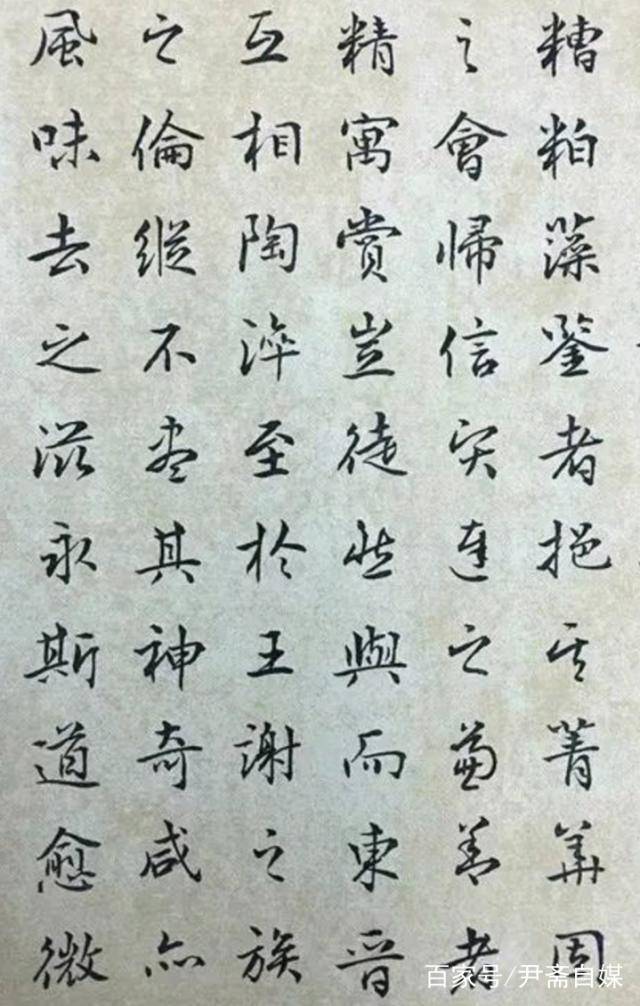 糟粕藻鑒者挹其菁華固
之會歸信賢達之兼善者
精寓賞豈徒然與而東晉
互相陶淬至於王謝之族
之倫縱不盡其神奇咸亦
風味去之滋永斯道愈微
百家号/尹斋自媒